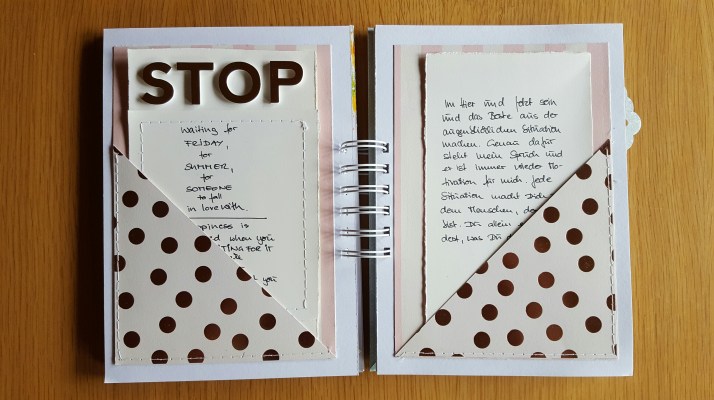 STOP
Waiting for
FRIDAY,
for
SUMMER,
for
SOMEONE
to fall
in love with.
ppiness is
d when you
TING FOR IT
you
Im Hier und Jetzt sein
und das Beste aus der
augenblicklichen Situation
machen. Genau dafür
steht mein Spruch und
er ist immer wieder Mo-
tivation für mich. Jede
Situation macht Dich
dem Menschen, de
bist. Du allein
dest, was Du